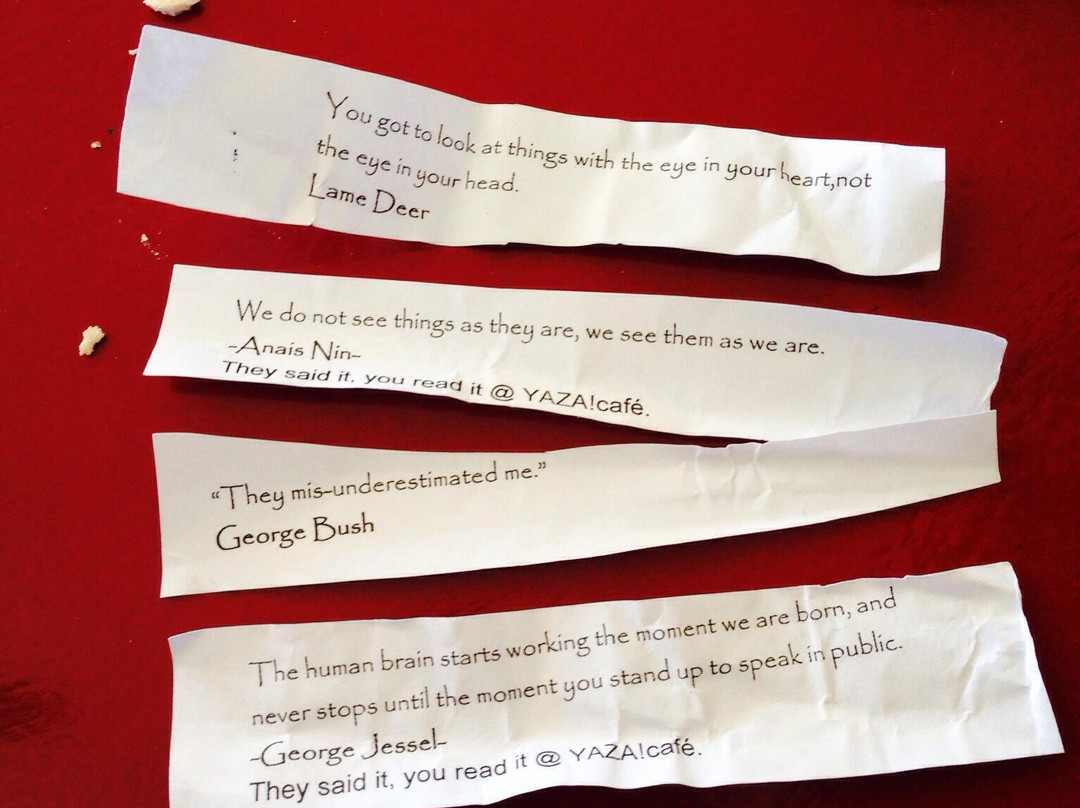 You got to look at things with the eye in your heart,not
the eye in your head.
Lame Deer
We do not see things as they are, we see them as we are.
-Anais Nin-
They said it, you read it @ YAZA!café.
“They mis-underestimated me.”
George Bush
The human brain starts working the moment we are born, and
never stops until the moment you stand up to speak in public.
-George Jessel-
They said it, you read it @ YAZA!café.